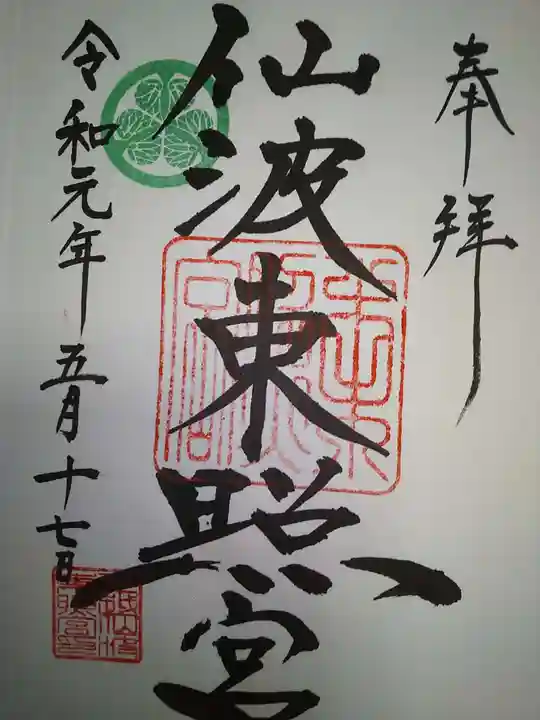 奉拝
仙波東照宮
令和元年五月十七日